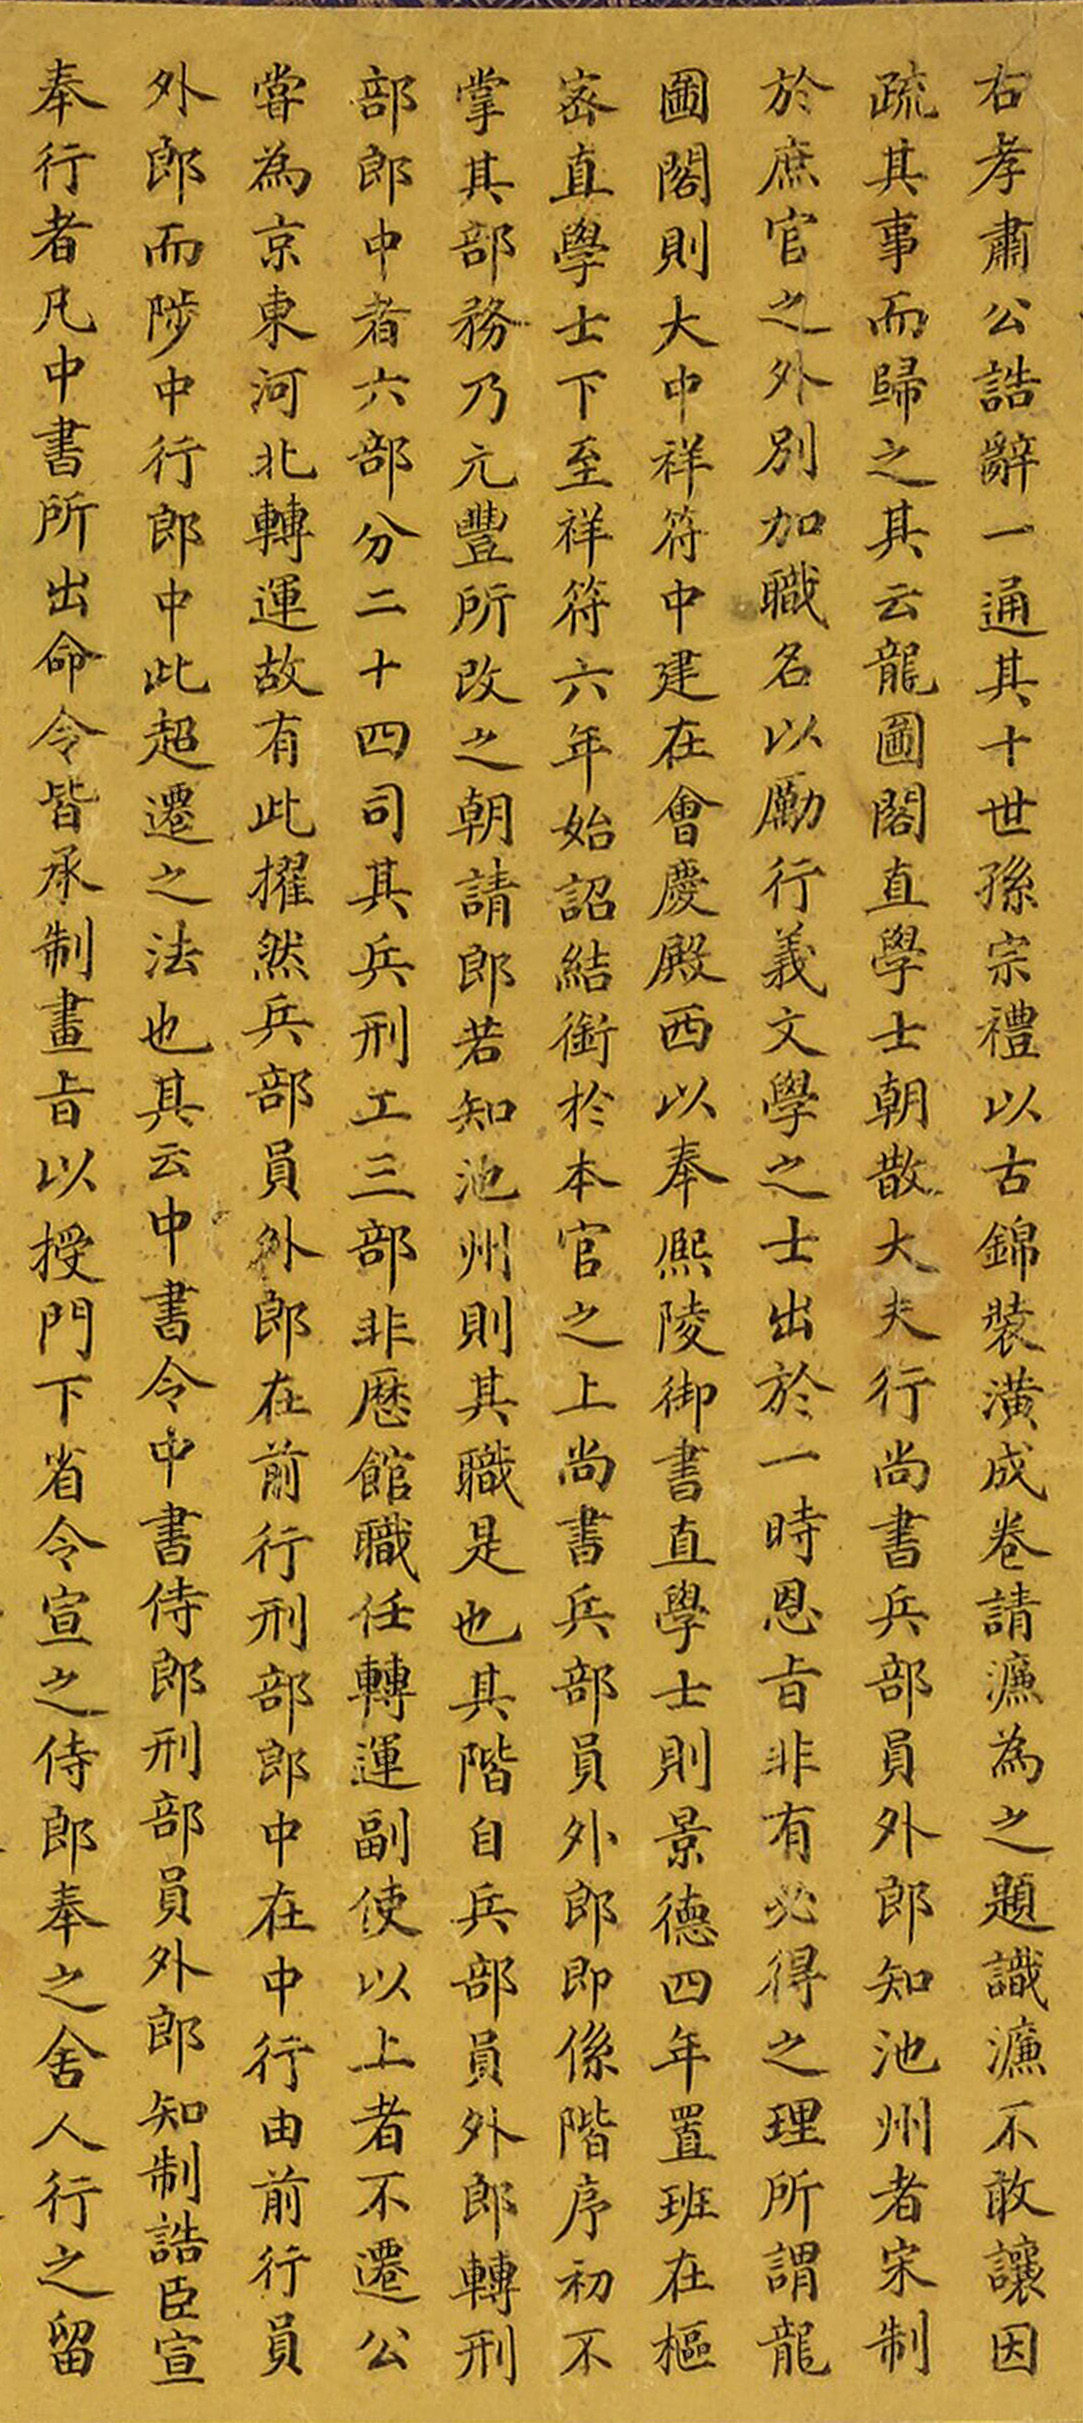 右孝肅公誥辭一通其十世孫宗禮以古錦裝潢成卷請濂為之題識濂不敢讓因
疏其事而歸之其云龍圖閣直學士朝散大夫行尚書兵部員外郎知池州者宋制
於庶官之外別加職名以勵行義文學之士出於一時恩旨非有必得之理所謂龍
圖閣則大中祥符中建在會慶殿西以奉熈陵御書直學士則景德四年置班在樞
宻直學士下至祥符六年始詔結銜於本官之上尚書兵部員外郎即係階序初不
掌其部務乃元豐所改之朝請郎若知池州則其職是也其階自兵部員外郎轉刑
部郎中者六部分二十四司其兵刑工三部非歷館職任轉運副使以上者不遷公
甞為京東河北轉運故有此擢然兵部員外郎在前行刑部郎中在中行由前行員
外郎而陟中行郎中此超遷之法也其云中書令中書侍郎刑部員外郎知制誥臣宣
奉行者凡中書所出命令皆承制畫旨以授門下省令宣之侍郎奉之舍人行之留